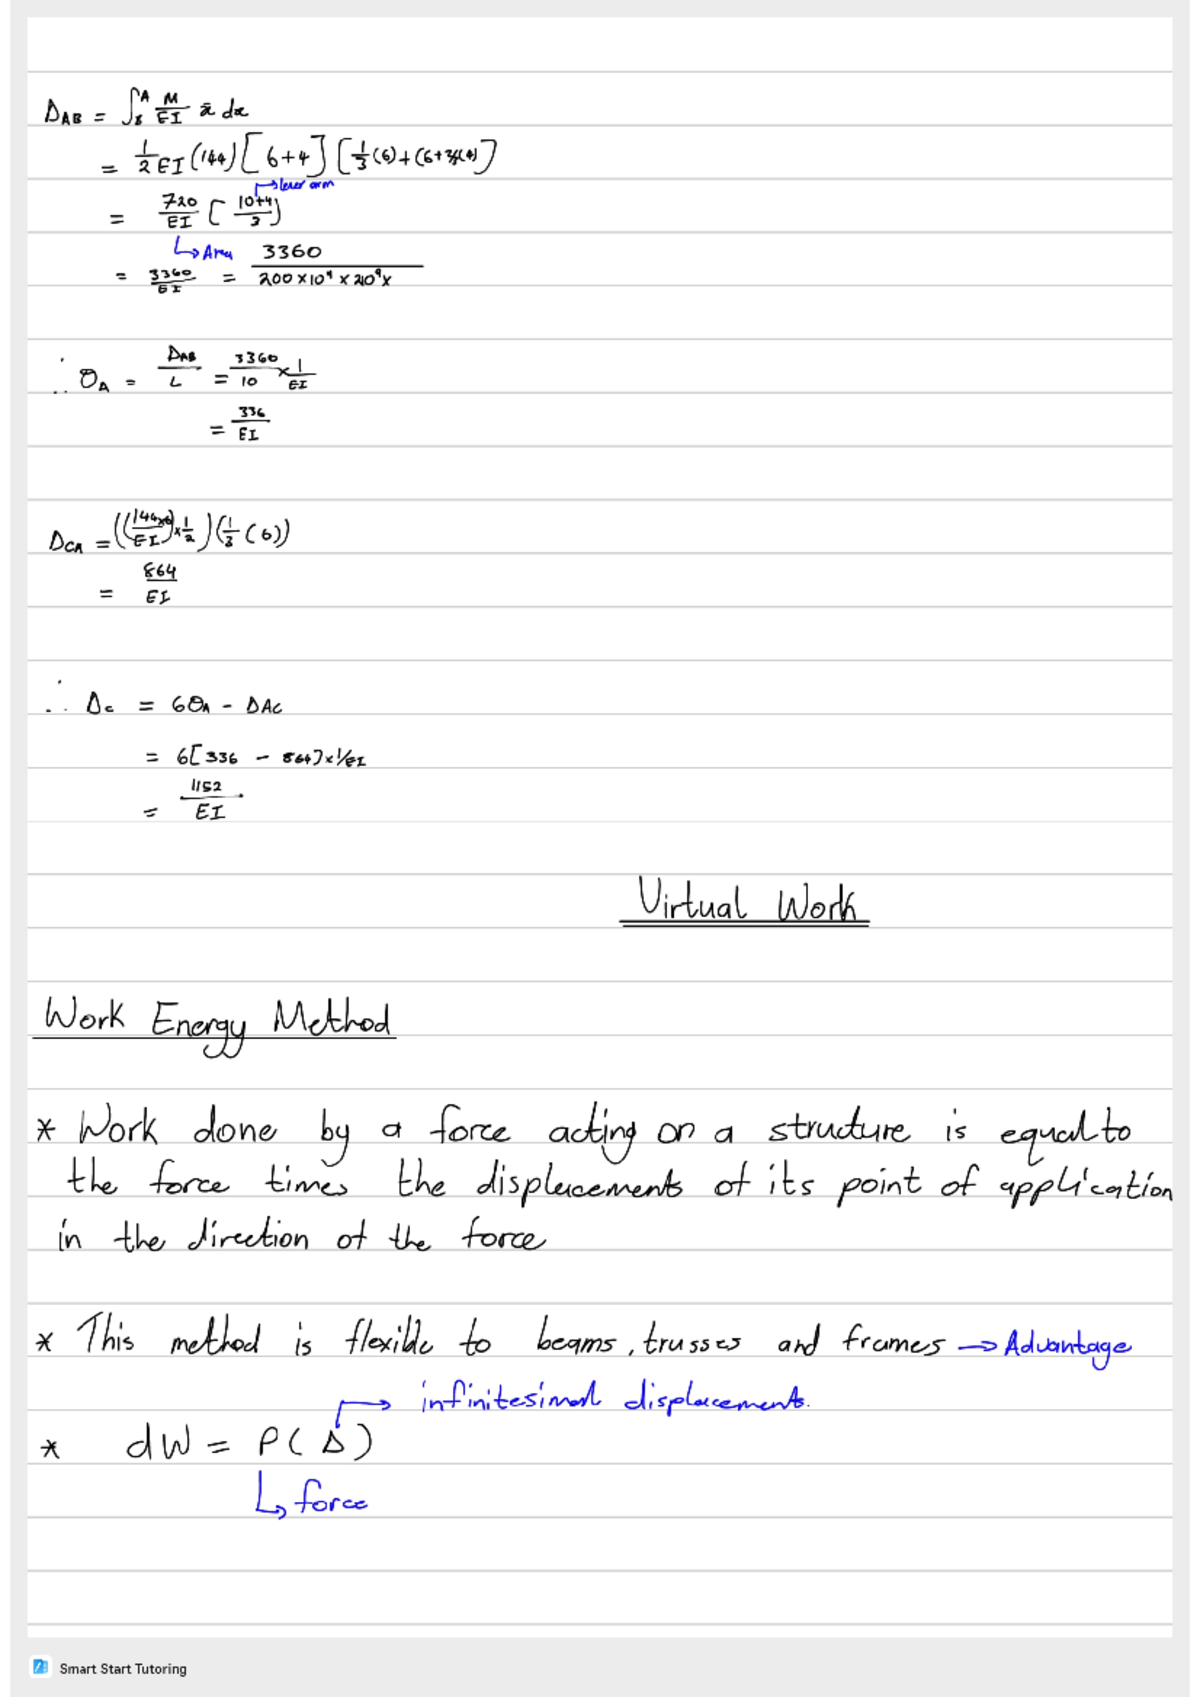 Δ_AB = ∫_B^A M/EI x̄ dx
= 1/2 EI (144) [6+4] [1/3(6) + (6+
→ lever arm
= 720/EI [10+4/3)
↳ Area
= 3360/EI = 3360/200×10⁹ ×
∴ θ_A = Δ_AB/L = 3360/10 × 1/EI
= 336/EI
Δ_CA = ((144×6/EI)×1/2)(1/3(6))
= 864/EI
∴ Δ_C = 6θ_A - Δ_AC
= 6[336 - 864]×1/EI
= 1152/EI
Virtual Work
Work Energy Method
* Work done by a force acting on a structure is equal to
the force times the displacements of its point of application
in the direction of the force
* This method is flexible to beams, trusses and frames → Advantage
→ infinitesimal displacements.
* dW = P(Δ)
↳ force
Smart Start Tutoring